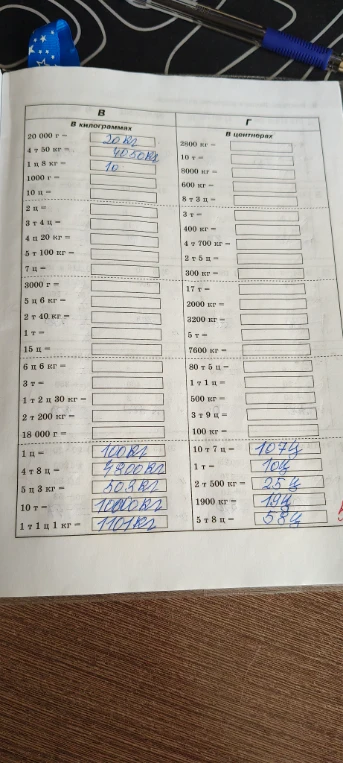 В
В килограммах
20 000 г = 20 кг
4 т 50 кг = 4050 кг
1 ц 8 кг = 10
1000 г =
10 ц =
2 ц =
3 т 4 ц =
4 ц 20 кг =
5 т 100 кг =
7 ц =
3000 г =
5 ц 6 кг =
2 т 40 кг =
1 т =
15 ц =
6 ц 6 кг =
3 т =
1 т 2 ц 30 кг =
2 т 200 кг =
18 000 г =
1 ц = 100 кг
4 т 8 ц = 4800 кг
5 ц 3 кг = 503 кг
10 т = 10000 кг
1 т 1 ц 1 кг = 1101 кг
Г
В центнерах
2600 кг =
10 т =
8000 кг =
600 кг =
8 т 3 ц =
3 т =
400 кг =
4 т 700 кг =
2 т 5 ц =
300 кг =
17 т =
2000 кг =
3200 кг =
5 т =
7600 кг =
80 т 5 ц =
1 т 1 ц =
500 кг =
3 т 9 ц =
100 кг =
10 т 7 ц = 107 ц
1 т = 10 ц
2 т 500 кг = 25 ц
1900 кг = 19 ц
5 т 8 ц = 58 ц